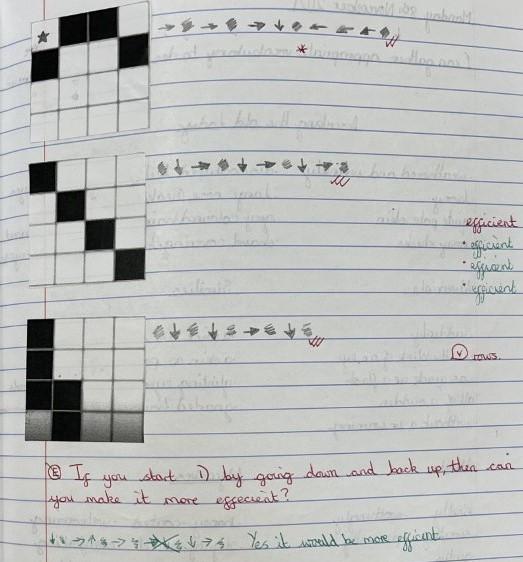 efficient
• efficient
• efficient
• efficient
V rows.
E If you start 1) by going down and back up, then can
you make it more effeceint?
Yes it would be more efficient